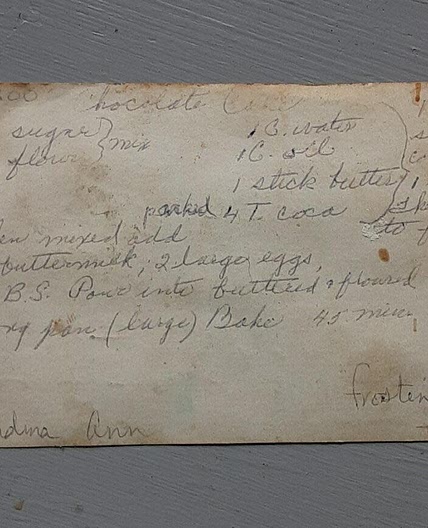 00 hocolate Cake
sugar } mix 1 C. water
flour 1 C. oil
1 stick butter
packed 4 T. coca
en mixed add
buttermilk, 2 large eggs,
B.S. Pour into buttered & floured
ng pan. (large) Bake 45 min
to f
frostin
ndma Ann